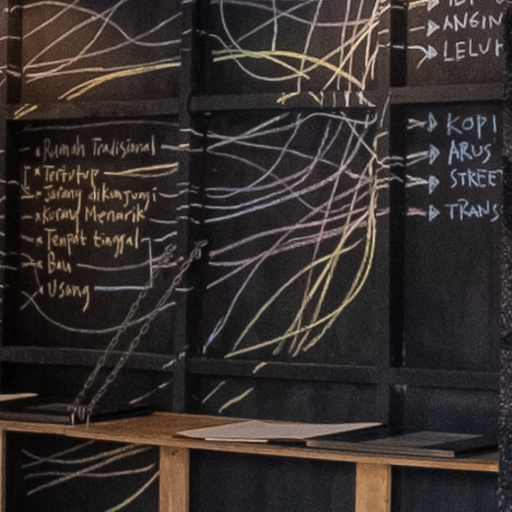 ANGIN
LELUH
Rumah Tradisional
Tertutup
Jarang dikunjungi
Kurang Menarik
Tempat tinggal
Bau
Usang
KOPI
ARUS
STREE
TRANS